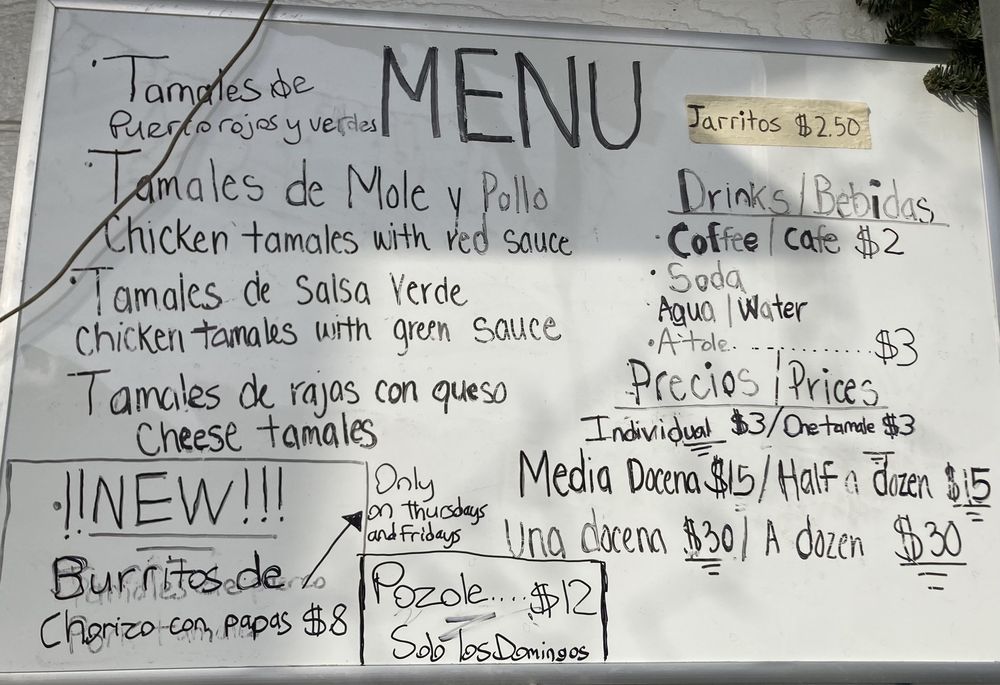 MENU
·Tamales de
Puerco rojos y verdes
·Tamales de Mole y Pollo
Chicken tamales with red sauce
·Tamales de Salsa Verde
Chicken tamales with green sauce
Tamales de rajas con queso
Cheese tamales
¡¡NEW!!!
Burritos de
Chorizo con papas $8
Only
on Thursdays
and Fridays
Pozole....$12
Solo los Domingos
Jarritos $2.50
Drinks/Bebidas
·Coffee/cafe $2
·Soda
Agua/Water
·Atole...............$3
Precios/Prices
Individual $3/One tamale $3
Media Docena $15/Half a dozen $15
Una docena $30/A dozen $30